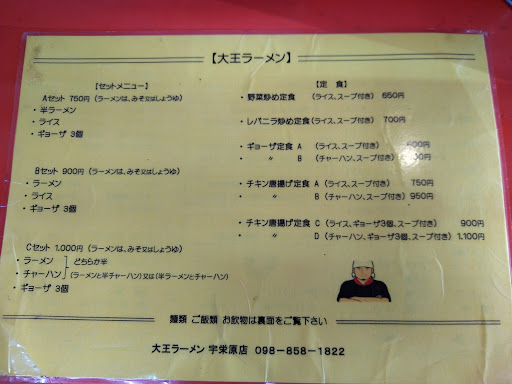 【大王ラーメン】
【セットメニュー】
Aセット 750円 (ラーメンは、みそ又はしょうゆ)
・半ラーメン
・ライス
・ギョーザ 3個
Bセット 900円 (ラーメンは、みそ又はしょうゆ)
・ラーメン
・ライス
・ギョーザ 3個
Cセット 1.000円 (ラーメンは、みそ又はしょうゆ)
・ラーメン どちらか半
・チャーハン (ラーメンと半チャーハン)又は(半ラーメンとチャーハン)
・ギョーザ 3個
【定 食】
・野菜炒め定食 (ライス、スープ付き) 650円
・レバニラ炒め定食(ライス、スープ付き) 700円
・ギョーザ定食 A (ライス、スープ付き) 00円
・ 〃 B (チャーハン、スープ付き) 00円
・チキン唐揚げ定食 A (ライス、スープ付き) 750円
・ 〃 B (チャーハン、スープ付き) 950円
・チキン唐揚げ定食 C (ライス、ギョーザ3個、スープ付き) 900円
・ 〃 D (チャーハン、ギョーザ3個、スープ付き) 1.100円
麺類 ご飯類 お飲物は裏面をご覧下さい
大王ラーメン 宇栄原店 098-858-1822